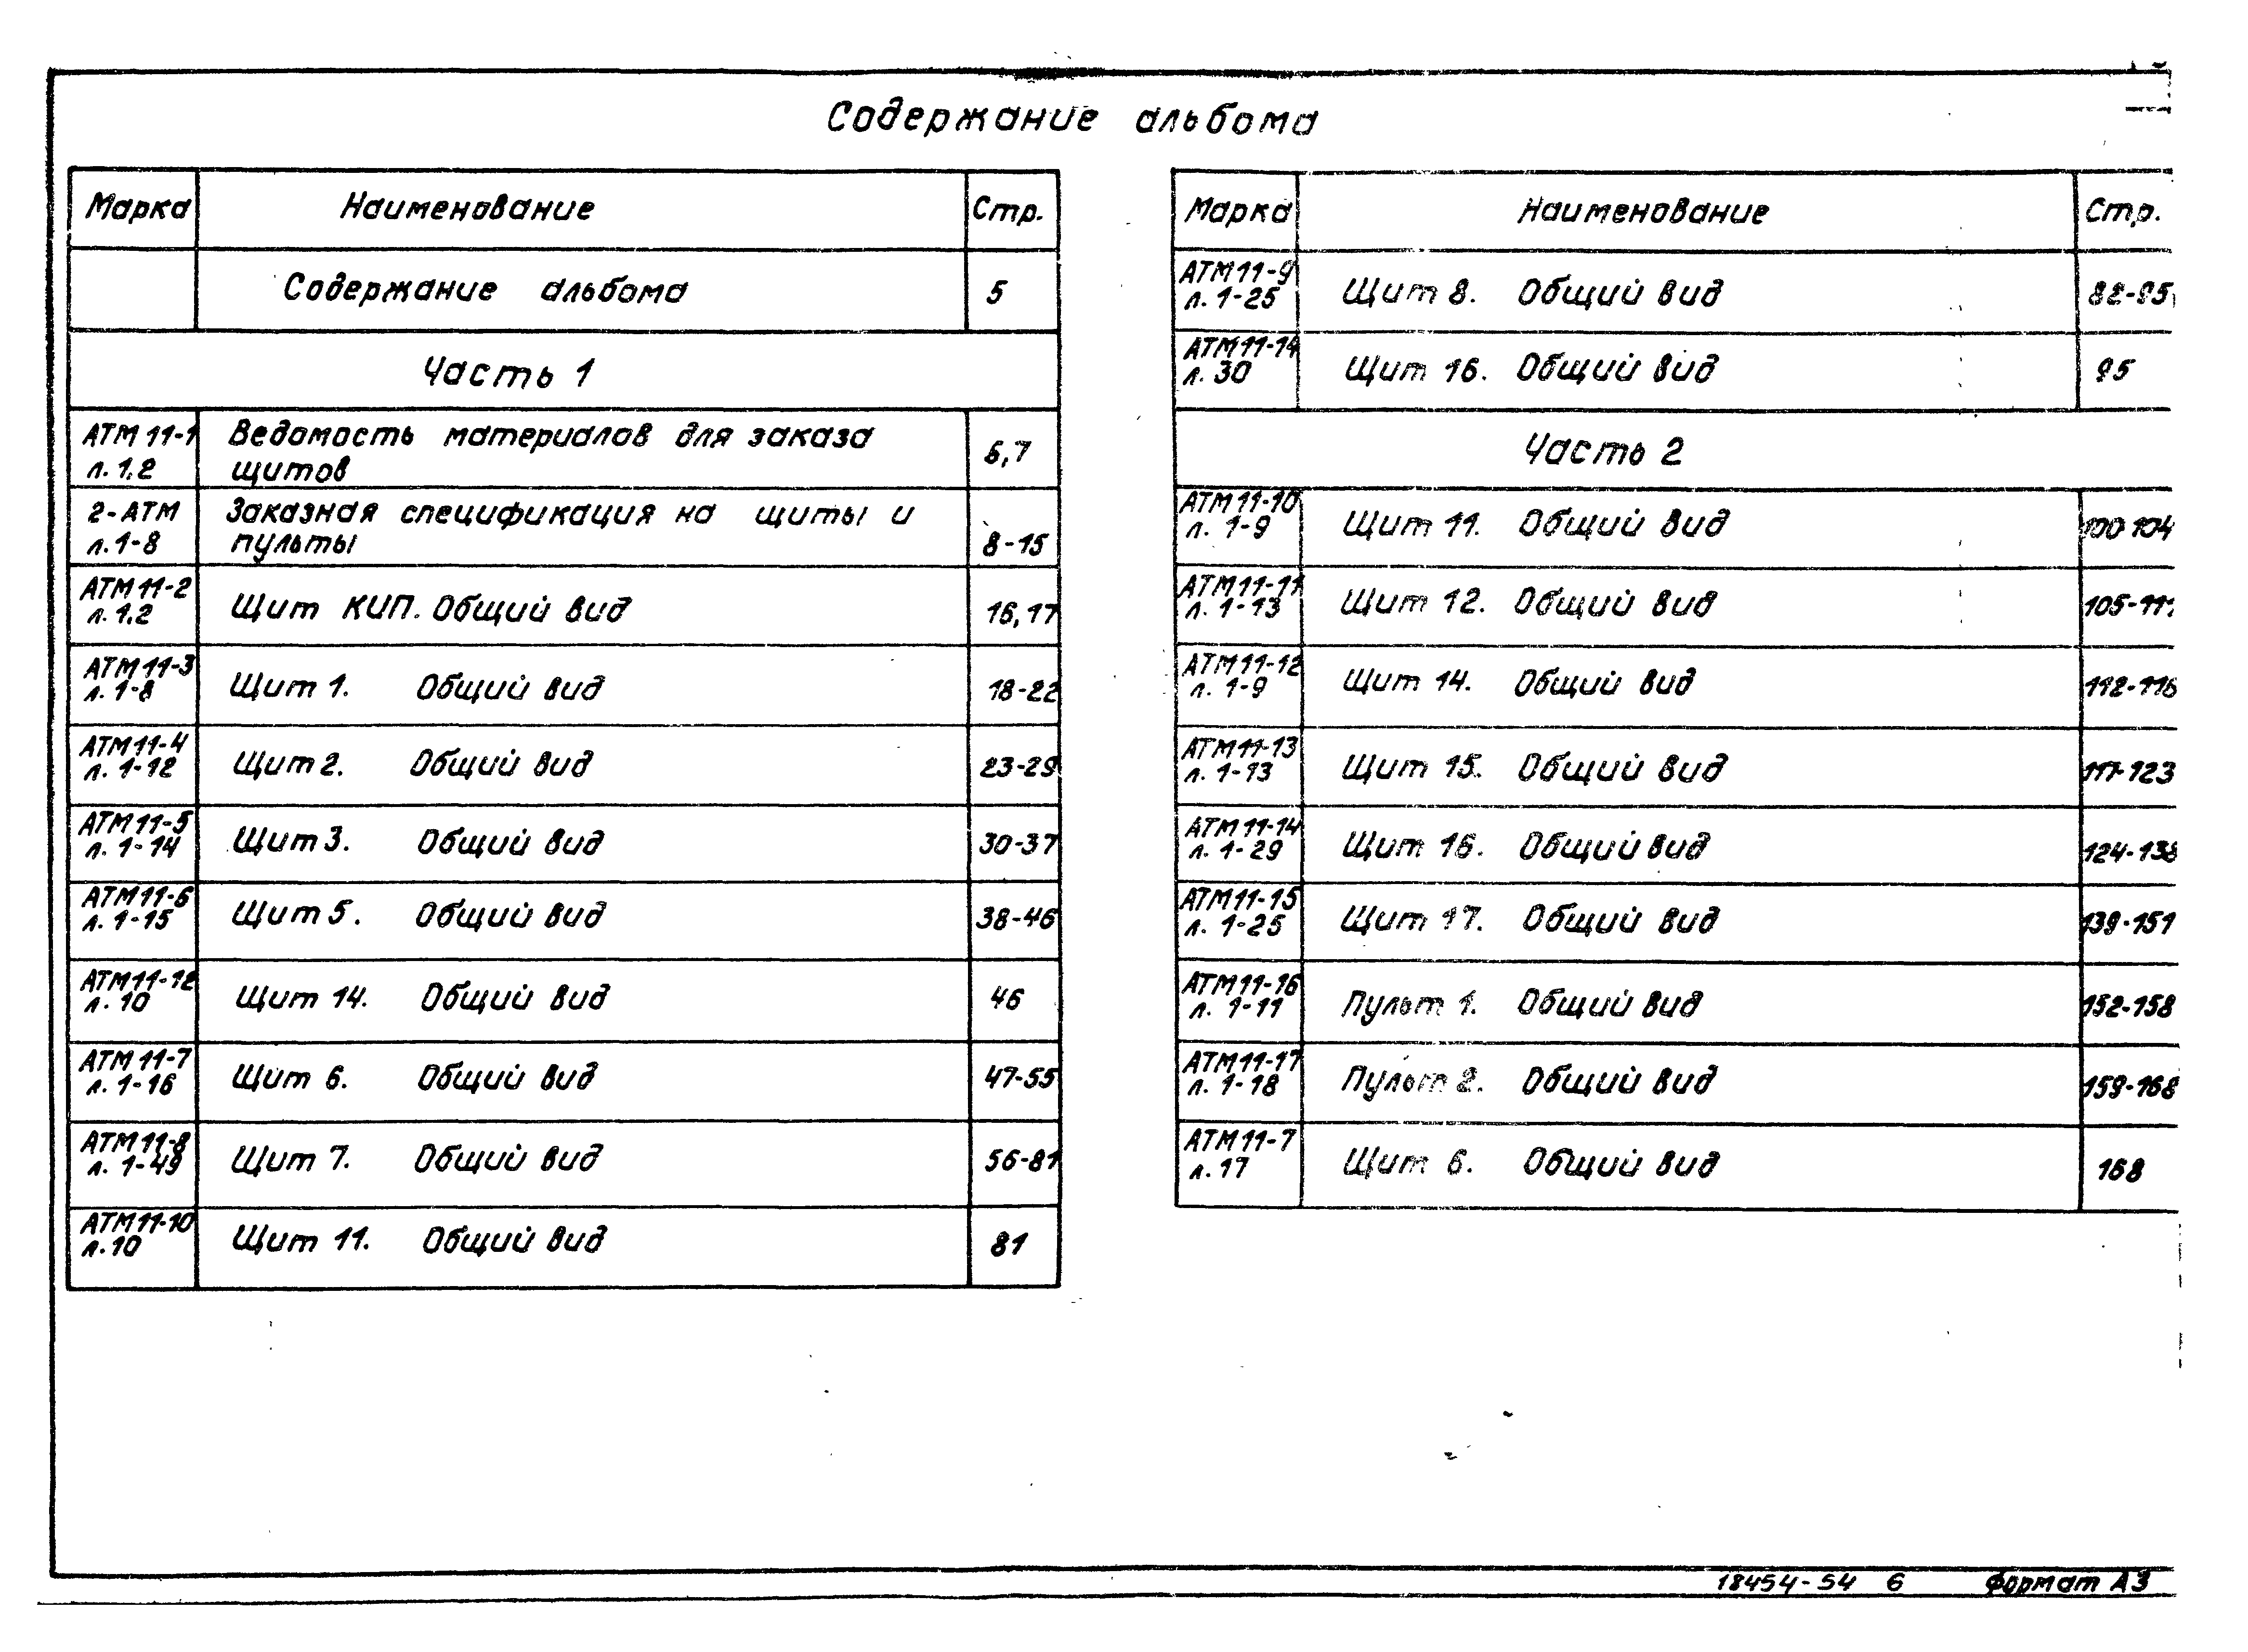 Содержание альбома
Марка Наименование Стр.
Содержание альбома 5
Часть 1
АТМ 11-1 Ведомость материалов для заказа
л. 1,2 щитов 6,7
2-АТМ Заказная спецификация на щиты и
л. 1-8 пульты 8-15
АТМ 11-2
л. 1,2 Щит КИП. Общий вид 16,17
АТМ 11-3
л. 1-8 Щит 1. Общий вид 18-22
АТМ 11-4
л. 1-12 Щит 2. Общий вид 23-29
АТМ 11-5
л. 1-14 Щит 3. Общий вид 30-37
АТМ 11-6
л. 1-15 Щит 5. Общий вид 38-46
АТМ 11-12
л. 10 Щит 14. Общий вид 46
АТМ 11-7
л. 1-16 Щит 6. Общий вид 47-55
АТМ 11-8
л. 1-49 Щит 7. Общий вид 56-81
АТМ 11-10
л. 10 Щит 11. Общий вид 81
Марка Наименование Стр.
АТМ 11-9
л. 1-25 Щит 8. Общий вид
АТМ 11-14
л. 30 Щит 16. Общий вид 95
Часть 2
АТМ 11-10
л. 1-9 Щит 11. Общий вид 100-104
АТМ 11-11
л. 1-13 Щит 12. Общий вид 105-111
АТМ 11-12
л. 1-9 Щит 14. Общий вид 112-116
АТМ 11-13
л. 1-13 Щит 15. Общий вид 117-123
АТМ 11-14
л. 1-29 Щит 16. Общий вид 124-138
АТМ 11-15
л. 1-25 Щит 17. Общий вид 139-151
АТМ 11-16
л. 1-11 Пульт 1. Общий вид 152-158
АТМ 11-17
л. 1-18 Пульт 2. Общий вид 159-168
АТМ 11-7
л. 17 Щит 6. Общий вид 168
18454-54 6 Формат А3